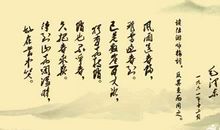 毛泽东
一九六一年十二月
读陆游咏梅词，反其意而用之。
风雨送春归，
飞雪迎春到。
已是悬崖百丈冰，
犹有花枝俏。
俏也不争春，
只把春来报。
待到山花烂漫时，
她在丛中笑。